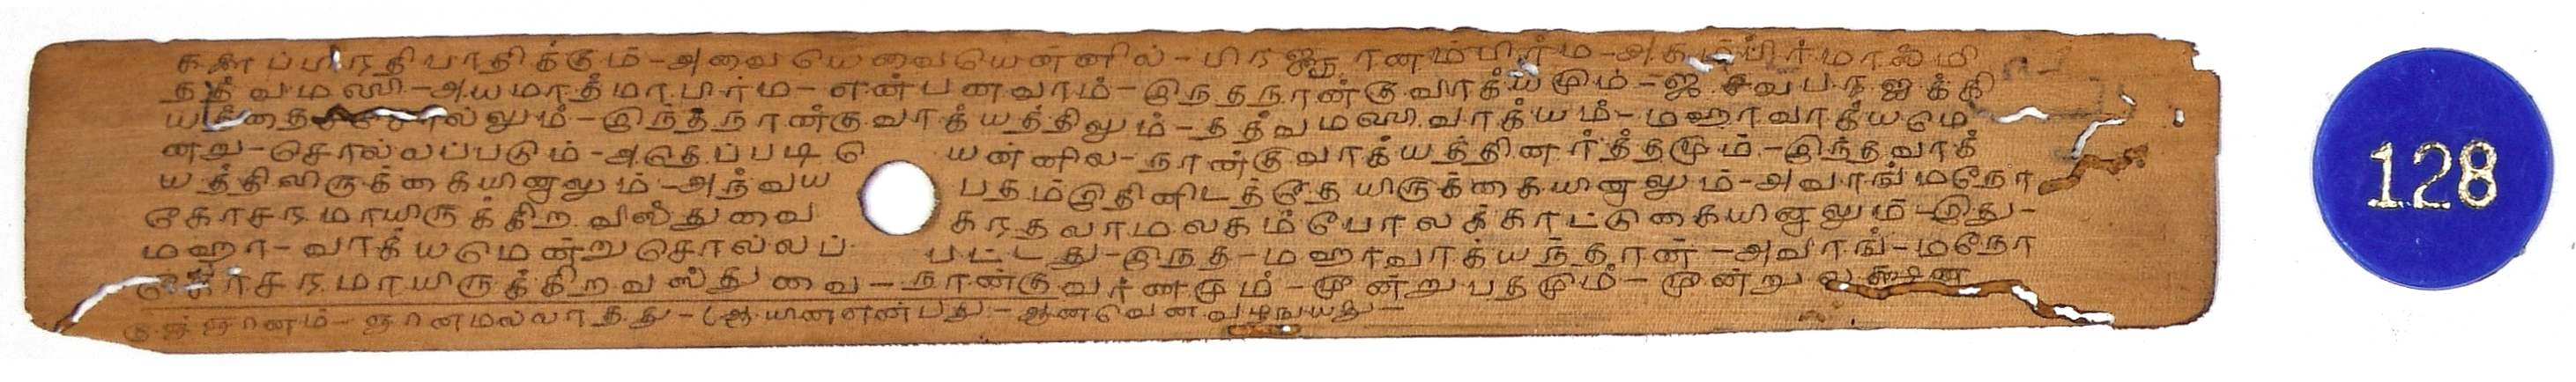 ககாப்பிரதிபாதிக்கும்-அவையெவையென்னில்-பிரஜ்ஞானம்பிர்ம-அகம்பிர்மாஸ்மி
தத்வமஸி-அயமாத்மாபிர்ம-என்பனவாம்-இந்தநான்குவாக்யமும்-ஜீவபரஐக்கி
யத்தைச்சொல்லும்-இந்தநான்குவாக்யத்திலும்-தத்வமஸிவாக்யம்-மஹாவாக்யமெ
னறு-சொல்லப்படும்-அதெப்படி யென்னில-நான்குவாக்யத்தினர்த்தமும்-இந்தவாக்
யத்திலிருக்கையினாலும்-அந்வய பதம்இதினிடத்தே யிருக்கையினாலும்-அவாங்மநோ
கோசரமாயிருக்கிற வஸ்துவை கரதலாமலகம்போலக்காட்டுகையினாலும்-இது-
மஹா-வாக்யமென்றுசொல்லப் பட்டது-இந்த-மஹாவாக்யந்தான்-அவாங்-மநோ
கோசரமாயிருக்கிறவஸ்துவை-நான்குவர்ணமும்-மூன்றுபதமும்-மூன்று லக்ஷண
ஞானமல்லாதது-
128